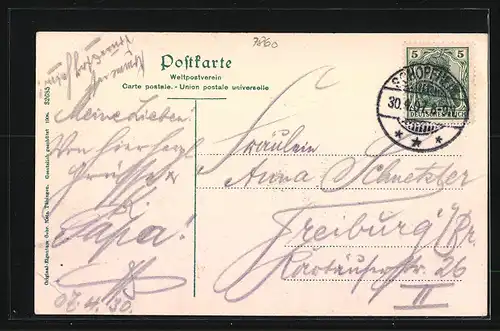 7260
Postkarte
Weltpostverein
Carte postale. - Union postale universelle
5 5
SCHOPFHEIM
30.4.07.
DEUTSCHES REICH
Meine Lieben!
Von hier herzl.
Grüsse
Papa!
07. 4. 30.
Fräulein
Anna Schnetzler
Freiburg i/Br.
Kartäuserstr. 26
II
32035
Gesetzlich geschützt 1906.
Original-Eigentum Gebr. Metz, Tübingen.